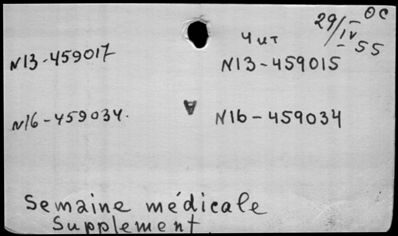 29/IV-55 ОС
Чит
N13-459017 N13-459015
N16-459034. N16-459034
Semaine médicale
Supplement